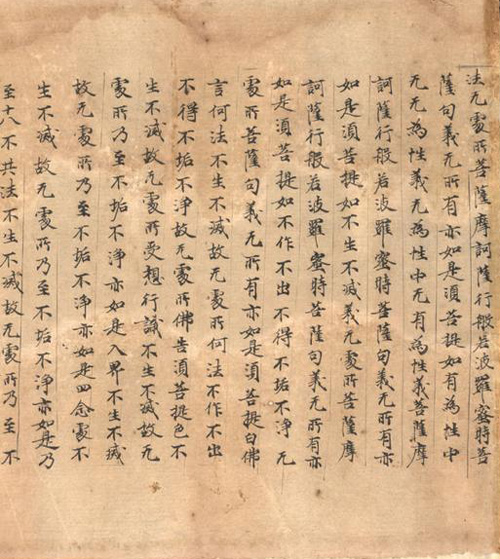 法无處所菩薩摩訶薩行般若波羅蜜時菩
薩句義无所有亦如是須菩提如有為性中
无无為性義无為性中无有為性義菩薩摩
訶薩行般若波羅蜜時菩薩句義无所有亦
如是須菩提如不生不滅義无處所菩薩摩
訶薩行般若波羅蜜時菩薩句義无所有亦
如是須菩提如不作不出不得不垢不淨无
處所菩薩句義无所有亦如是須菩提白佛
言何法不生不滅故无處所何法不作不出
不得不垢不淨故无處所佛告須菩提色不
生不滅故无處所受想行識不生不滅故无
處所乃至不垢不淨亦如是入界不生不滅
故无處所乃至不垢不淨亦如是四念處不
生不滅故无處所乃至不垢不淨亦如是乃
至十八不共法不生不滅故无處所乃至不